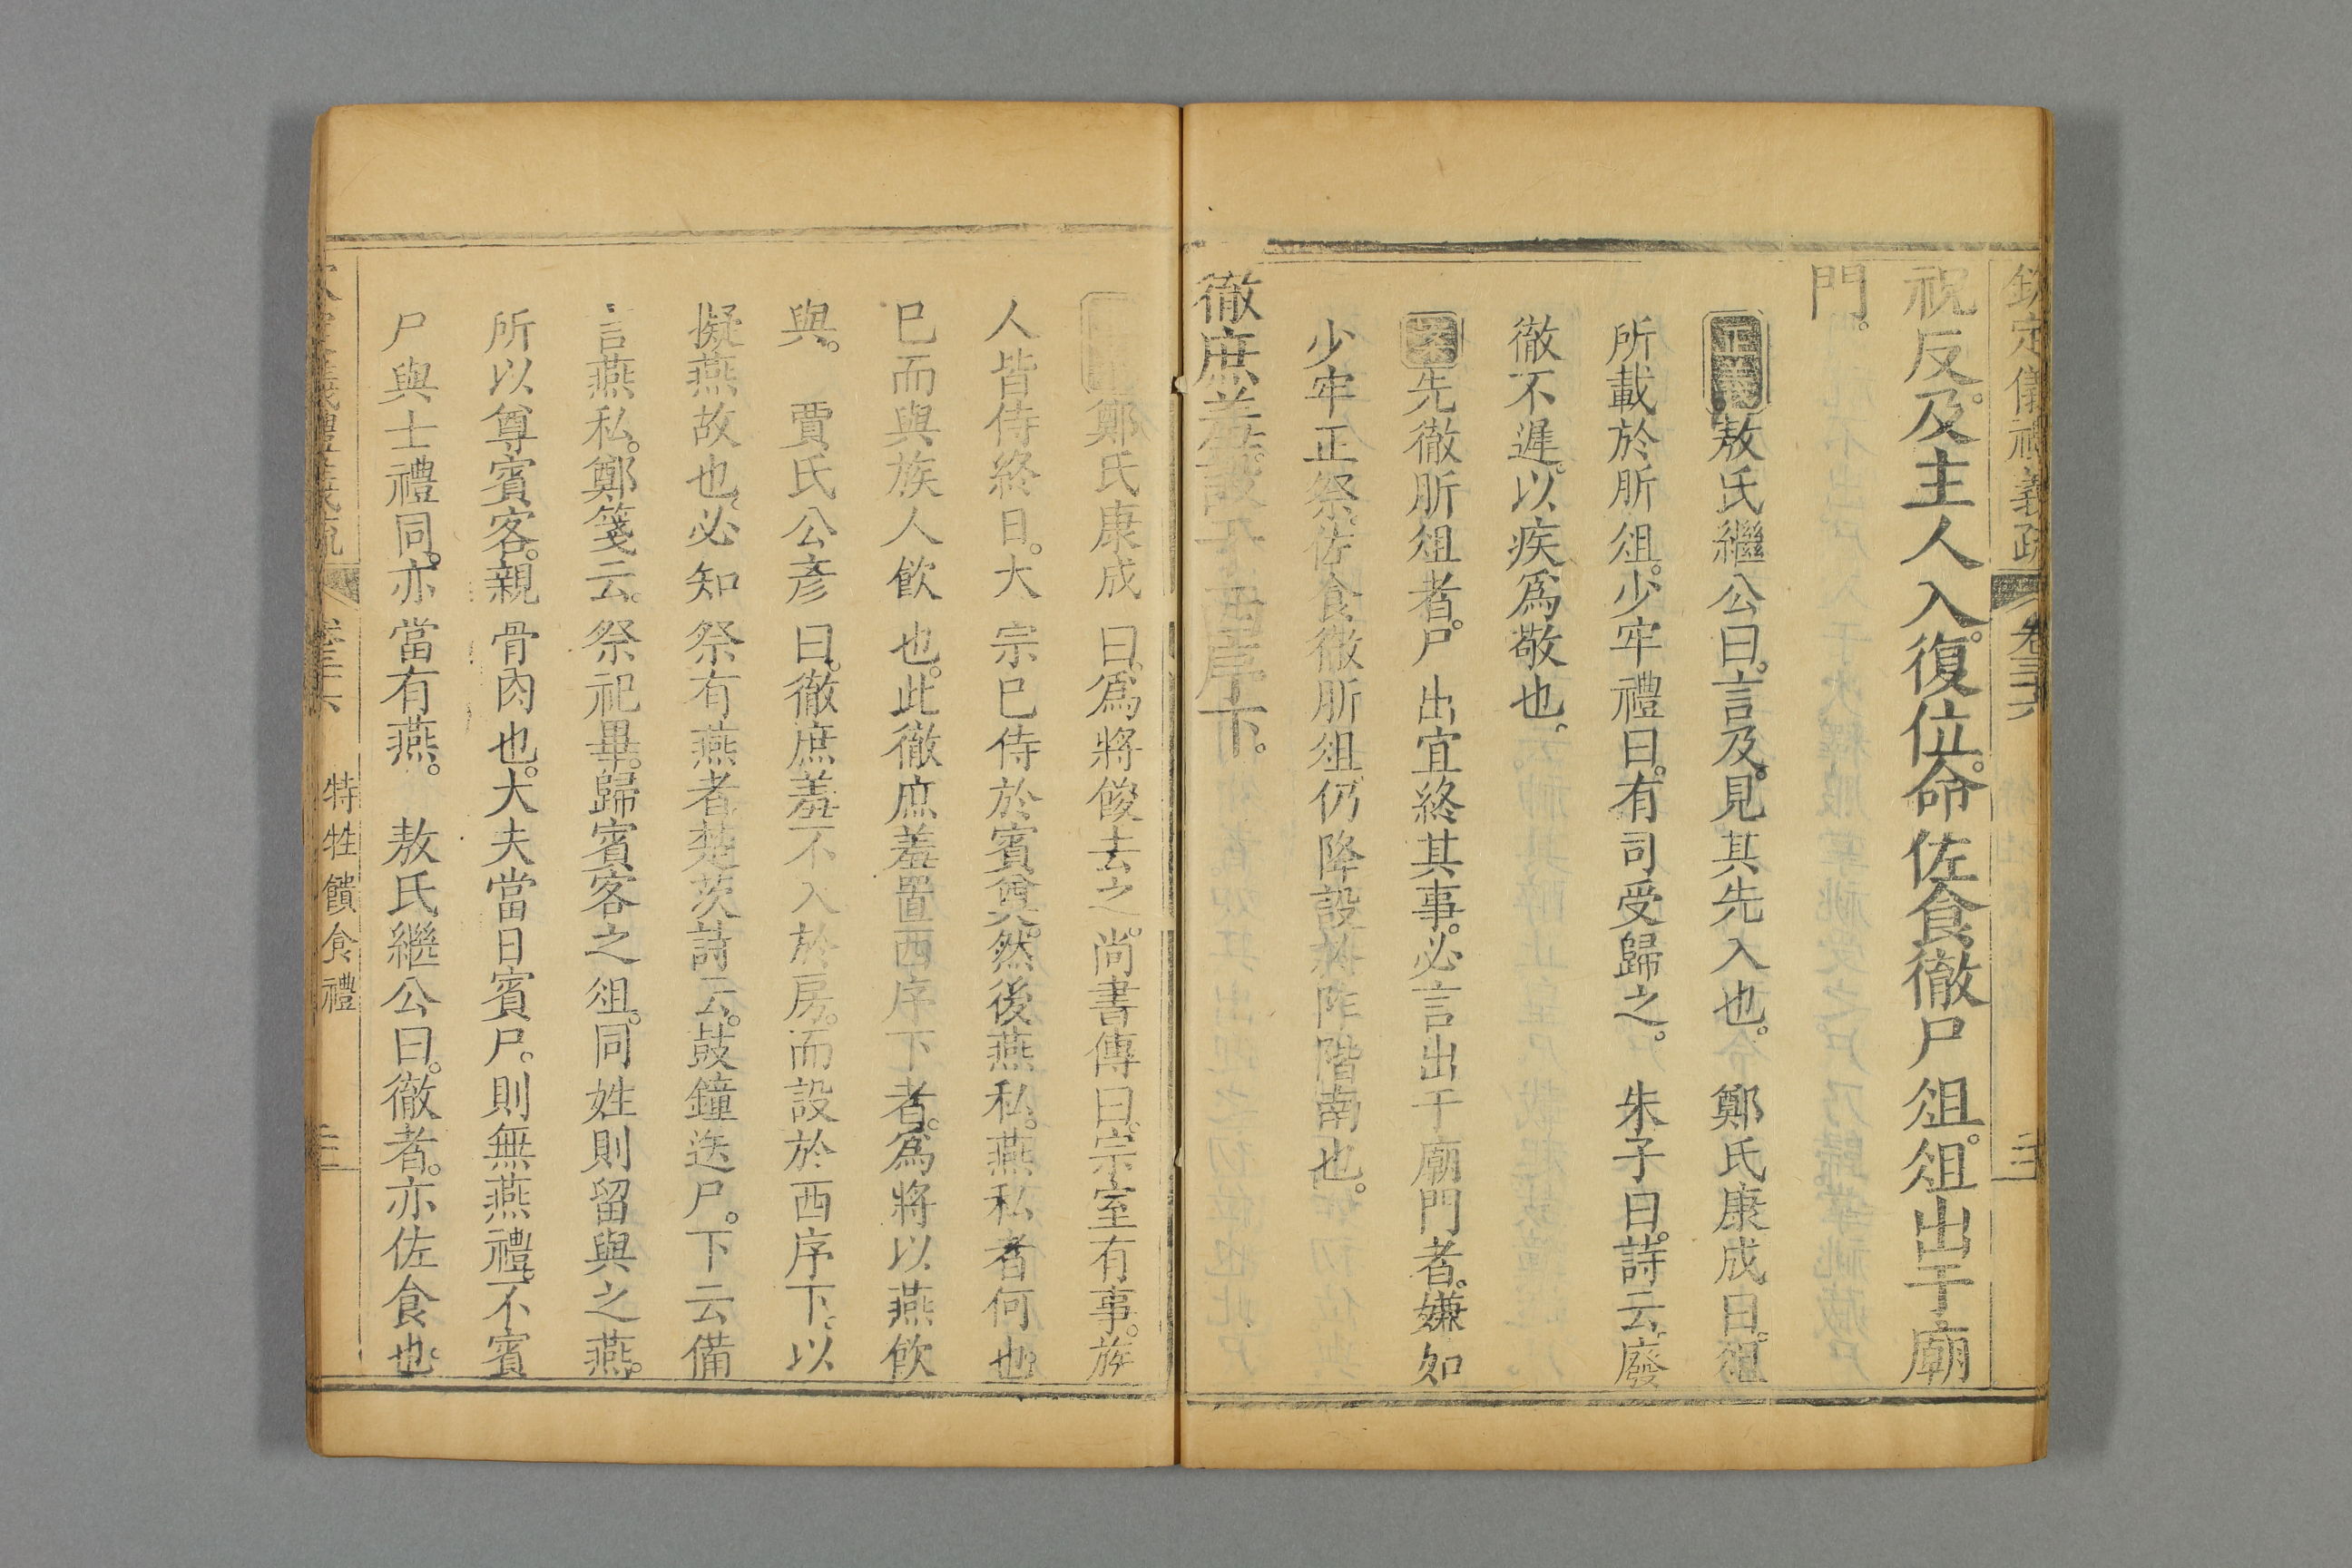 欽定儀禮義疏 卷三十六
祝反及主人入復位命佐食徹尸俎俎出于廟
門。
正義敖氏繼公曰言及見其先入也。 鄭氏康成曰俎
所載於肵俎少牢禮曰有司受歸之。 朱子曰詩云廢
徹不遲以疾爲敬也。
案先徹肵俎者尸出宜終其事必言出于廟門者嫌如
少牢正祭佐食徹肵俎仍降設于阼階南也。
徹庶羞設于西序下。
鄭氏康成曰爲將餕去之尚書傳曰宗室有事族
人皆侍終日大宗巳侍於賓奠然後燕私燕私者何也
巳而與族人飲也此徹庶羞置西序下者爲將以燕飲
與。 賈氏公彥曰徹庶羞不入於房而設於西序下以
擬燕故也必知祭有燕者楚茨詩云鼓鐘送尸下云備
言燕私鄭箋云祭祀畢歸賓客之俎同姓則留與之燕
所以尊賓客親骨肉也大夫當日賓尸則無燕禮不賓
尸與士禮同亦當有燕。 敖氏繼公曰徹者亦佐食也
特牲饋食禮